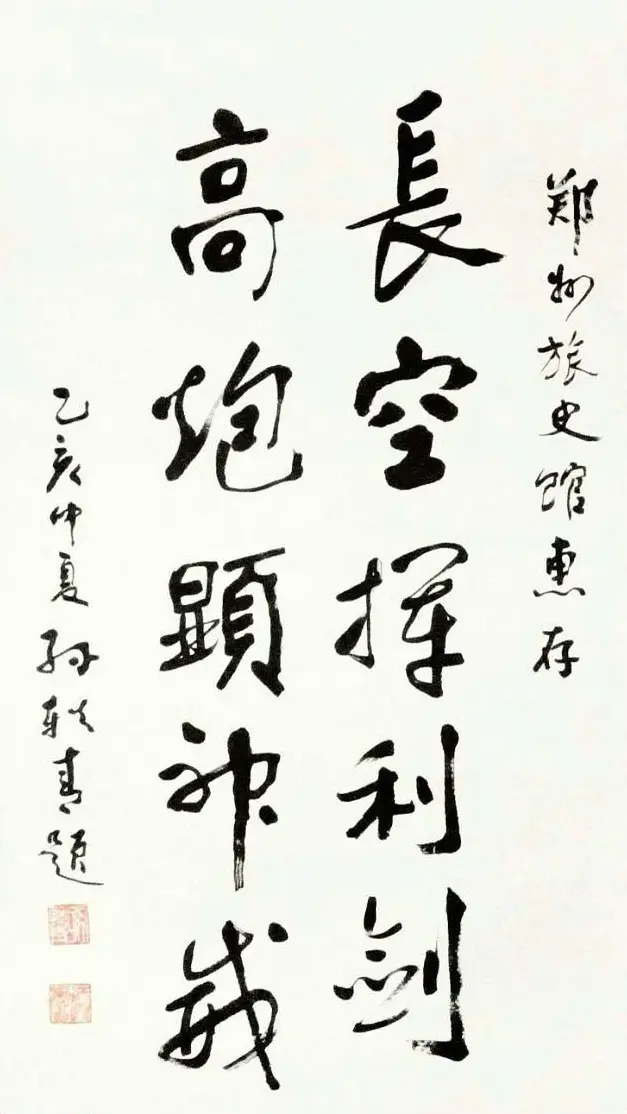 郑州旅史館惠存
長空揮利劍
高炮顯神威
乙亥仲夏 孙轶青題